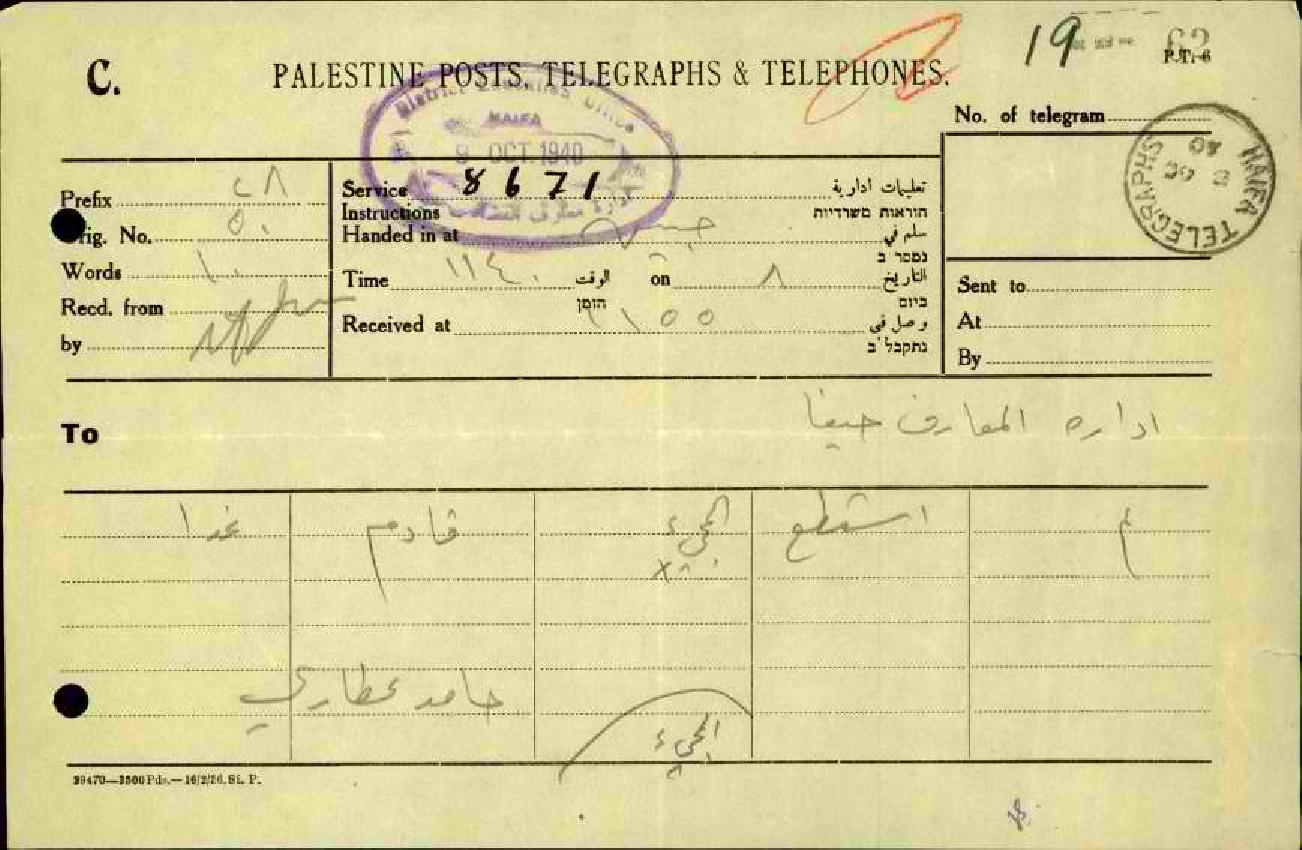 19
62
P.T. 6
C.
PALESTINE POSTS, TELEGRAPHS & TELEPHONES.
No. of telegram
District Education Office
HAIFA
9 OCT. 1940
HAIFA TELEGRAPHS
Prefix ٢٨
Orig. No. ٥٠
Words ١٠
Recd. from
by
Service 8671 تعليمات ادارية
Instructions הוראות משרדיות
Handed in at جنين سلم في
נמסר ב
Time ١١٤٠ الوقت on ٨ التاريخ
הזמן ביום
Received at ١١٥٥ وصل في
נתקבל ב
Sent to
At
By
To
اداره المعارف حيفا
لم استطع المجيء قادم غدا
حامد عطاري
المجيء
39470—3500 Pds.—16/2/36. St. P.